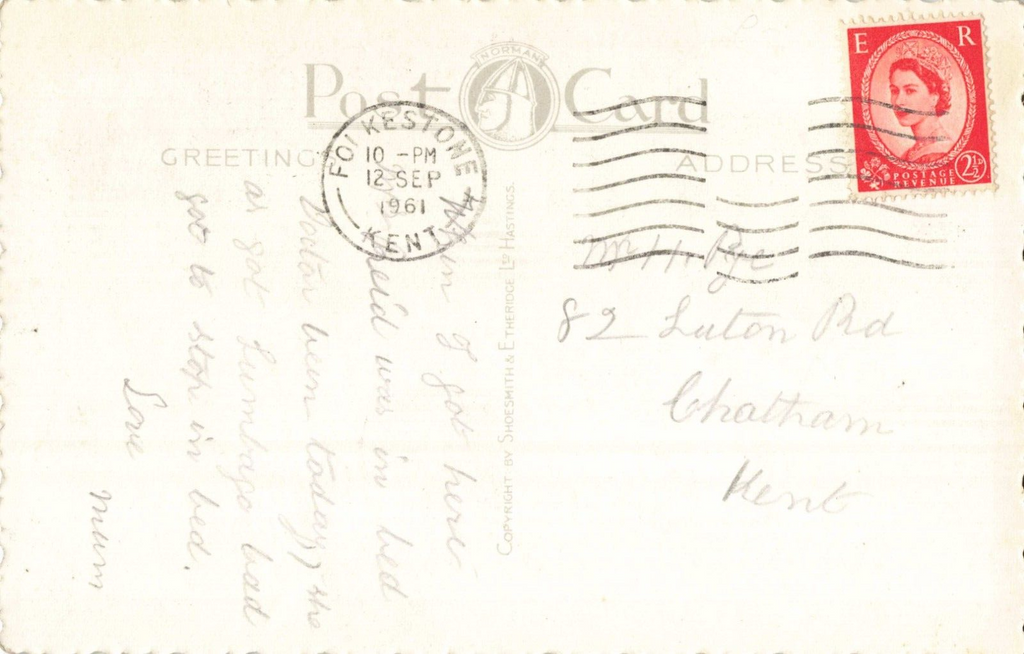 NORMAN
Post Card
GREETING
ADDRESS
FOLKESTONE
10 - PM
12 SEP
1961
KENT
E R
POSTAGE
REVENUE
2½
When I got here
was in bed
Doctor been today, she
as got Lumbago bad
got to stop in bed.
Love
Mum
COPYRIGHT BY SHOESMITH & ETHERIDGE LTD HASTINGS.
Mr H. Pye
82 Luton Rd
Chatham
Kent